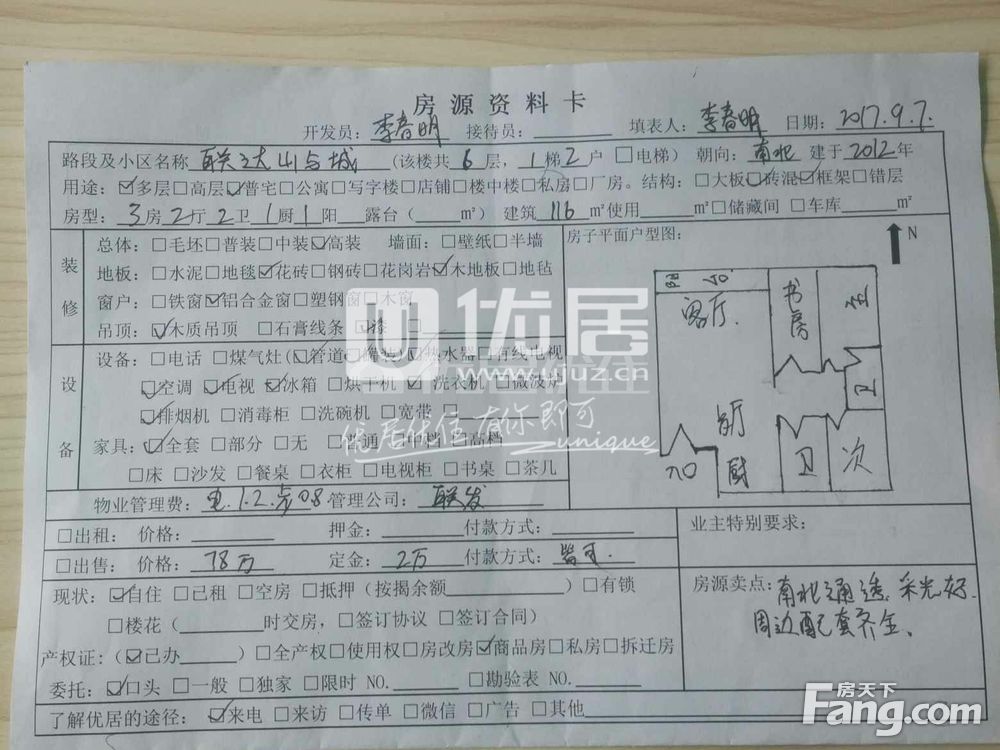 房源资料卡
开发员：李春明 接待员： 填表人：李春明 日期：2017.9.7.
路段及小区名称 联达山与城 （该楼共 6 层， 1 梯 2 户 □电梯）朝向：南北 建于 2012 年
用途：☑多层□高层☑普宅□公寓□写字楼□店铺□楼中楼□私房□厂房。结构：□大板☑砖混☑框架□错层
房型：3 房 2 厅 2 卫 1 厨 1 阳 露台（ ㎡） 建筑 116 ㎡使用 ㎡□储藏间 □车库 ㎡
装修
总体：□毛坯□普装□中装☑高装 墙面：□壁纸□半墙
地板：□水泥□地毯☑花砖□钢砖□花岗岩☑木地板□地毡
窗户：□铁窗☑铝合金窗□塑钢窗□木窗
吊顶：☑木质吊顶 □石膏线条 ☑漆 □
设备
设备：□电话 □煤气灶（☑管道□罐装）☑热水器□有线电视
☑空调 ☑电视 ☑冰箱 □烘干机 ☑洗衣机 □微波炉
☑排烟机 □消毒柜 □洗碗机 □宽带 □
家具：☑全套 □部分 □无 □普通 □中档 □高档
□床 □沙发 □餐桌 □衣柜 □电视柜 □书桌 □茶几
物业管理费： 1.2 08 管理公司：联发
□出租： 价格： 押金： 付款方式：
□出售： 价格：78万 定金：2万 付款方式：皆可.
现状：☑自住 □已租 □空房 □抵押（按揭余额 ）□有锁
□楼花（ 时交房，□签订协议 □签订合同）
产权证：（☑已办 ）□全产权□使用权□房改房☑商品房□私房□拆迁房
委托：☑口头 □一般 □独家 □限时 NO. □勘验表 NO.
了解优居的途径：☑来电 □来访 □传单 □微信 □广告 □其他
房子平面户型图：
N
阳台
客厅
书房
主
卫
餐厅
入口
厨
卫
次
业主特别要求：
房源卖点：南北通透，采光好.
周边配套齐全.
优居
www.ujuz.cn
优居优住 有你即可
unique
房天下
Fang.com